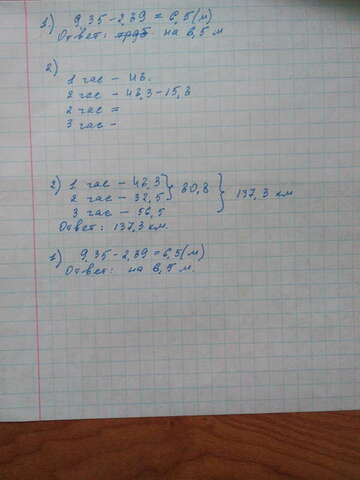 1) 9,35-2,39 = 6,5 (м)
Ответ: на 6,5 м
2)
1 час - 48.
2 час - 48,3-15,8
2 час =
3 час -
2) 1 час - 48,3 } 80,8 } 137,3 км
2 час - 32,5
3 час - 56,5
Ответ: 137,3 км.
1) 9,35-2,39 = 6,5 (м)
Ответ: на 6,5 м.